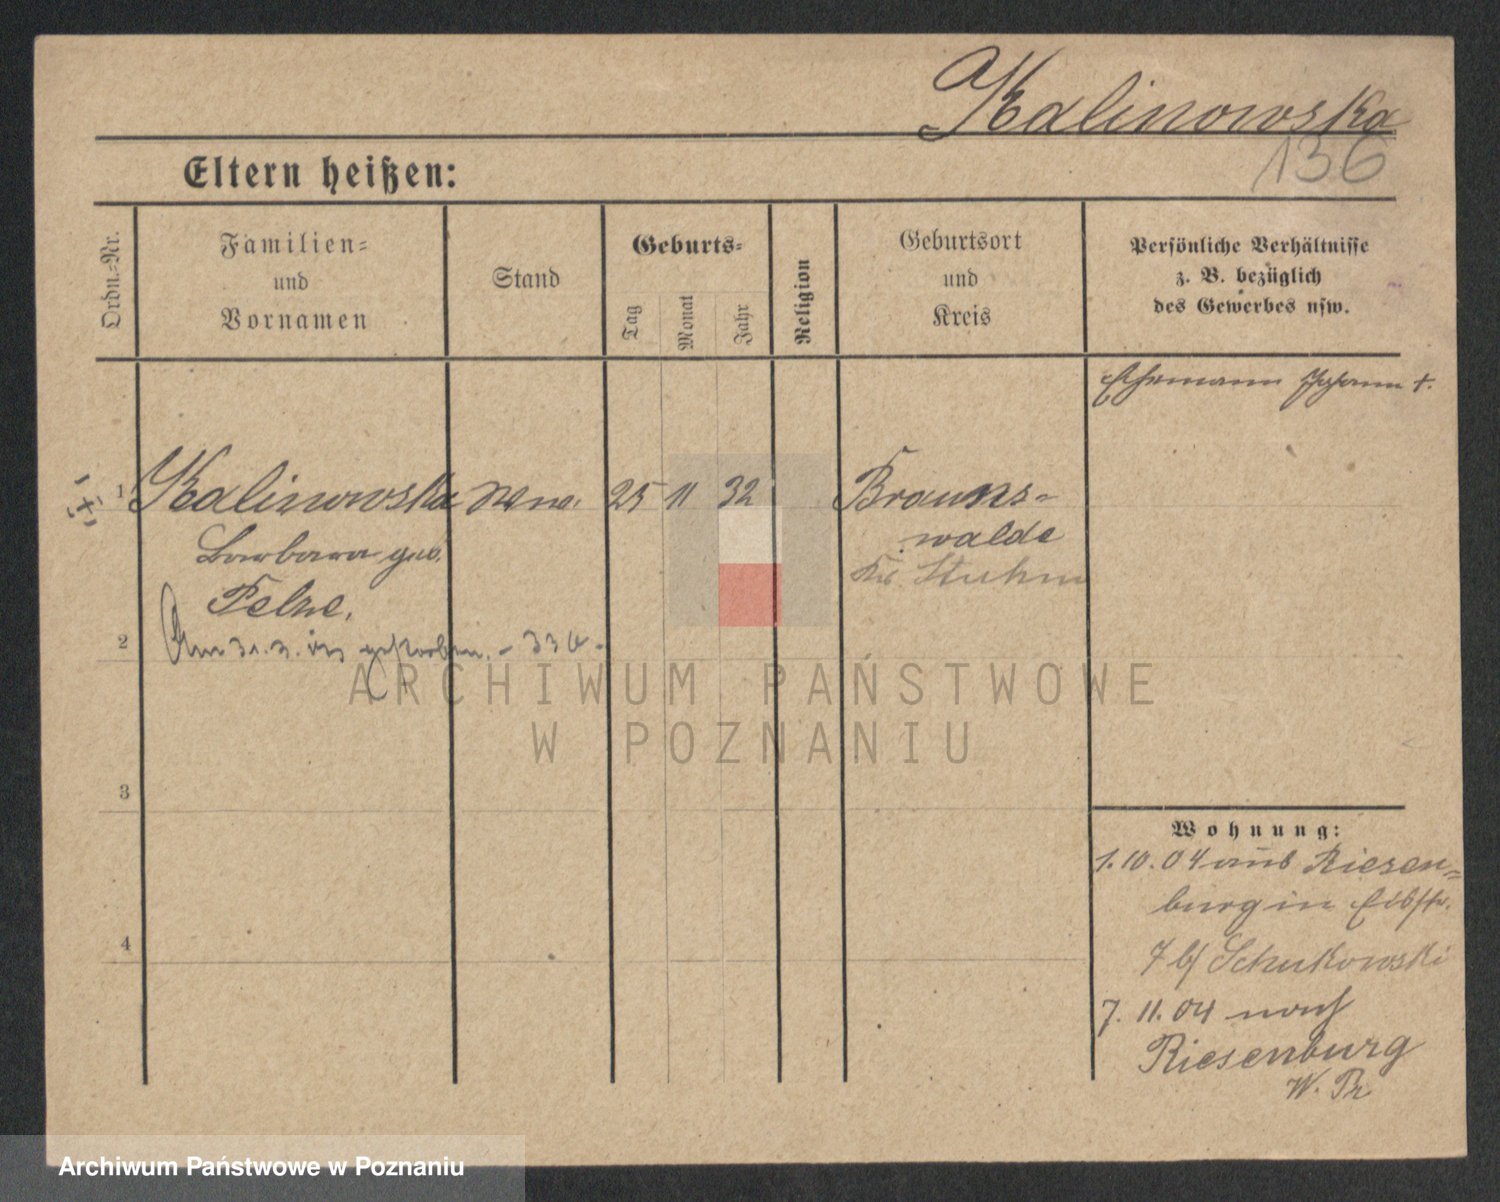 Kalinowska
136
Eltern heißen:
Ordn.=Nr.
Familien=
und
Vornamen
Stand
Geburts=
Tag
Monat
Jahr
Religion
Geburtsort
und
Kreis
Persönliche Verhältnisse
z. B. bezüglich
des Gewerbes usw.
Ehemann Johann †.
1 Kalinowska Wwe. 25 11 32 Brauns-
Barbara geb. walde
Kr. Stuhm
2 Am 31. 3. gestorben. - 336 -
ARCHIWUM PAŃSTWOWE
W POZNANIU
3
4
Wohnung:
1.10.04 aus Riesen=
burg in
7 b/ Schukowski
7.11.04 nach
Riesenburg
W. Pr
Archiwum Państwowe w Poznaniu